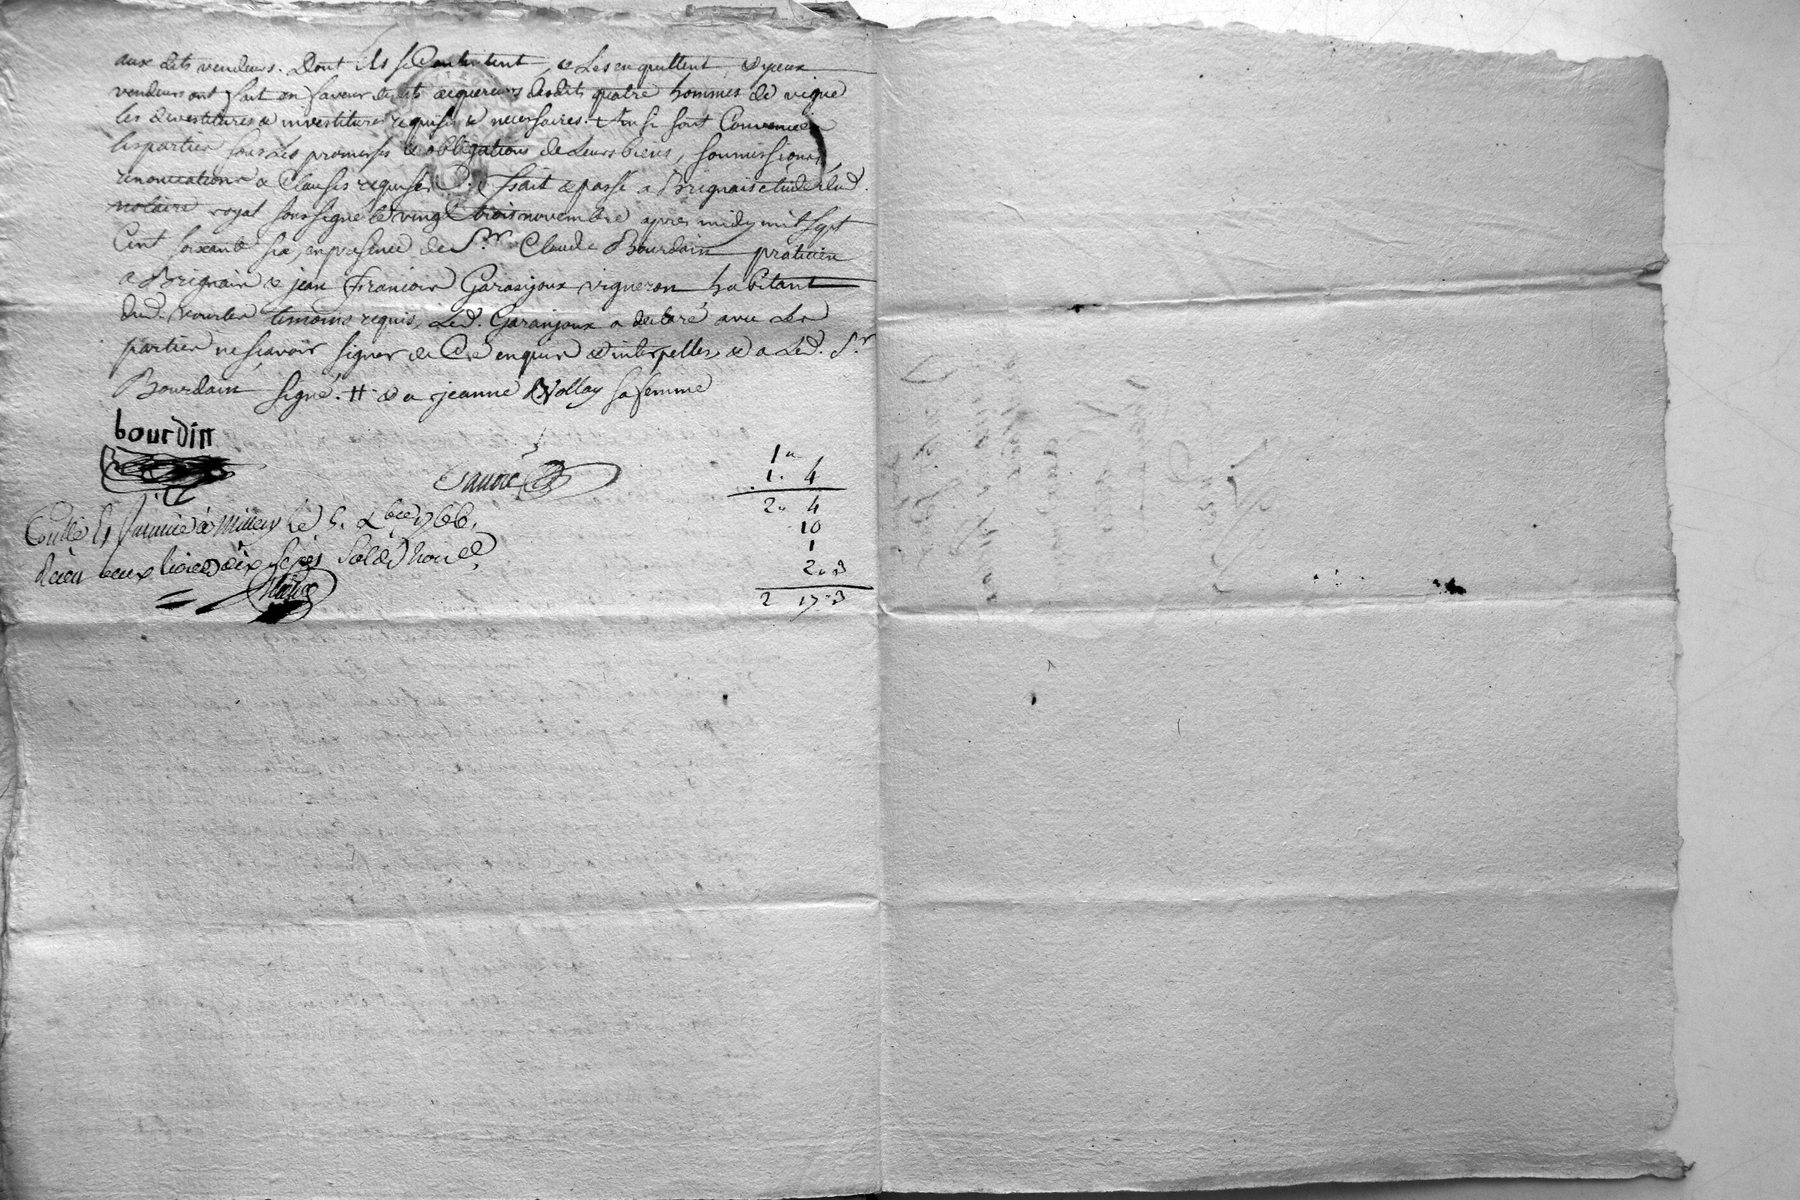 aux dits vendeurs. Dont ils se Contentent, & Les en quittent, & yceux
vendeurs ont fait en faveur desdits acquereurs desdits quatre hommes de vigne
les devestitures & investitures requises & necessaires. Ainsi sont Convenues
les parties sous Les promesses & obligations de Leurs biens, soumissions,
renonciations & Clauses requises. fait & passé a Brignais etude dud.
notaire royal soussigné le vingt trois novembre apres midy mil sept
Cent soixante six, en presence de Sr. Claude Bourdain praticien
a Brignais & jean François Garanjoux vigneron habitant
dud. Vourles temoins requis, Led. Garanjoux a declaré avec Les
parties ne sçavoir signer de Ce enquis & interpellés & a Led. Sr.
Bourdain signé. # & a jeanne Vollay sa femme
bourdin
1 "
1. 4
2 " 4
10
1
2 " 3
2 17 " 3
Conllé à Millery le 5. Xbre 1766.
Reçeu deux livres dix sept sols